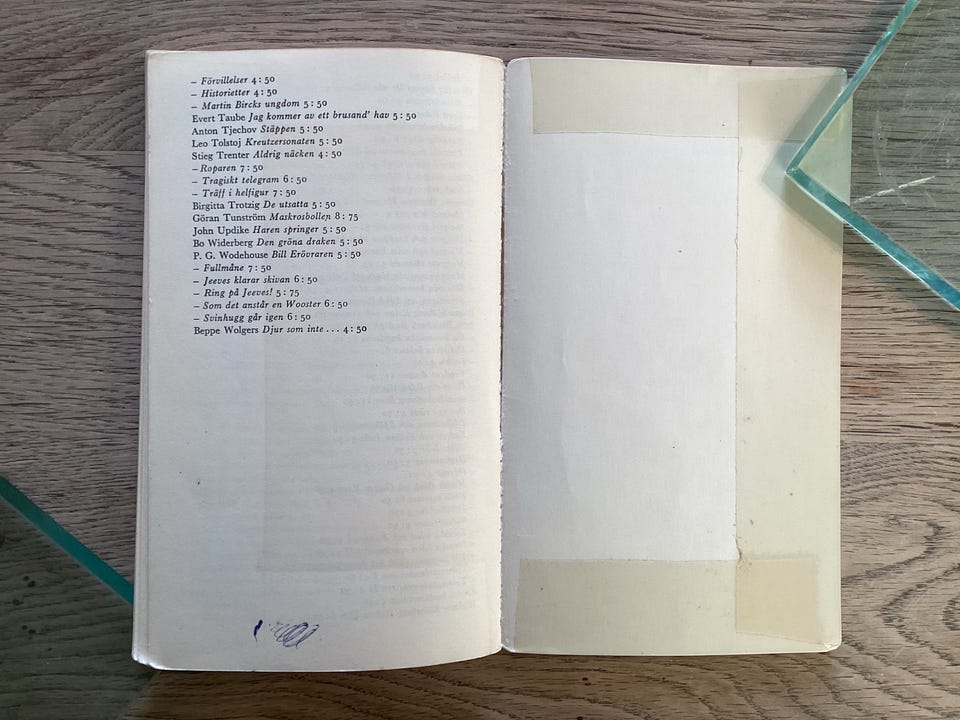 – Förvillelser 4: 50
– Historietter 4: 50
– Martin Bircks ungdom 5: 50
Evert Taube Jag kommer av ett brusand' hav 5: 50
Anton Tjechov Stäppen 5: 50
Leo Tolstoj Kreutzersonaten 5: 50
Stieg Trenter Aldrig näcken 4: 50
– Roparen 7: 50
– Tragiskt telegram 6: 50
– Träff i helfigur 7: 50
Birgitta Trotzig De utsatta 5: 50
Göran Tunström Maskrosbollen 8: 75
John Updike Haren springer 5: 50
Bo Widerberg Den gröna draken 5: 50
P. G. Wodehouse Bill Erövraren 5: 50
– Fullmåne 7: 50
– Jeeves klarar skivan 6: 50
– Ring på Jeeves! 5: 75
– Som det anstår en Wooster 6: 50
– Svinhugg går igen 6: 50
Beppe Wolgers Djur som inte . . . 4: 50